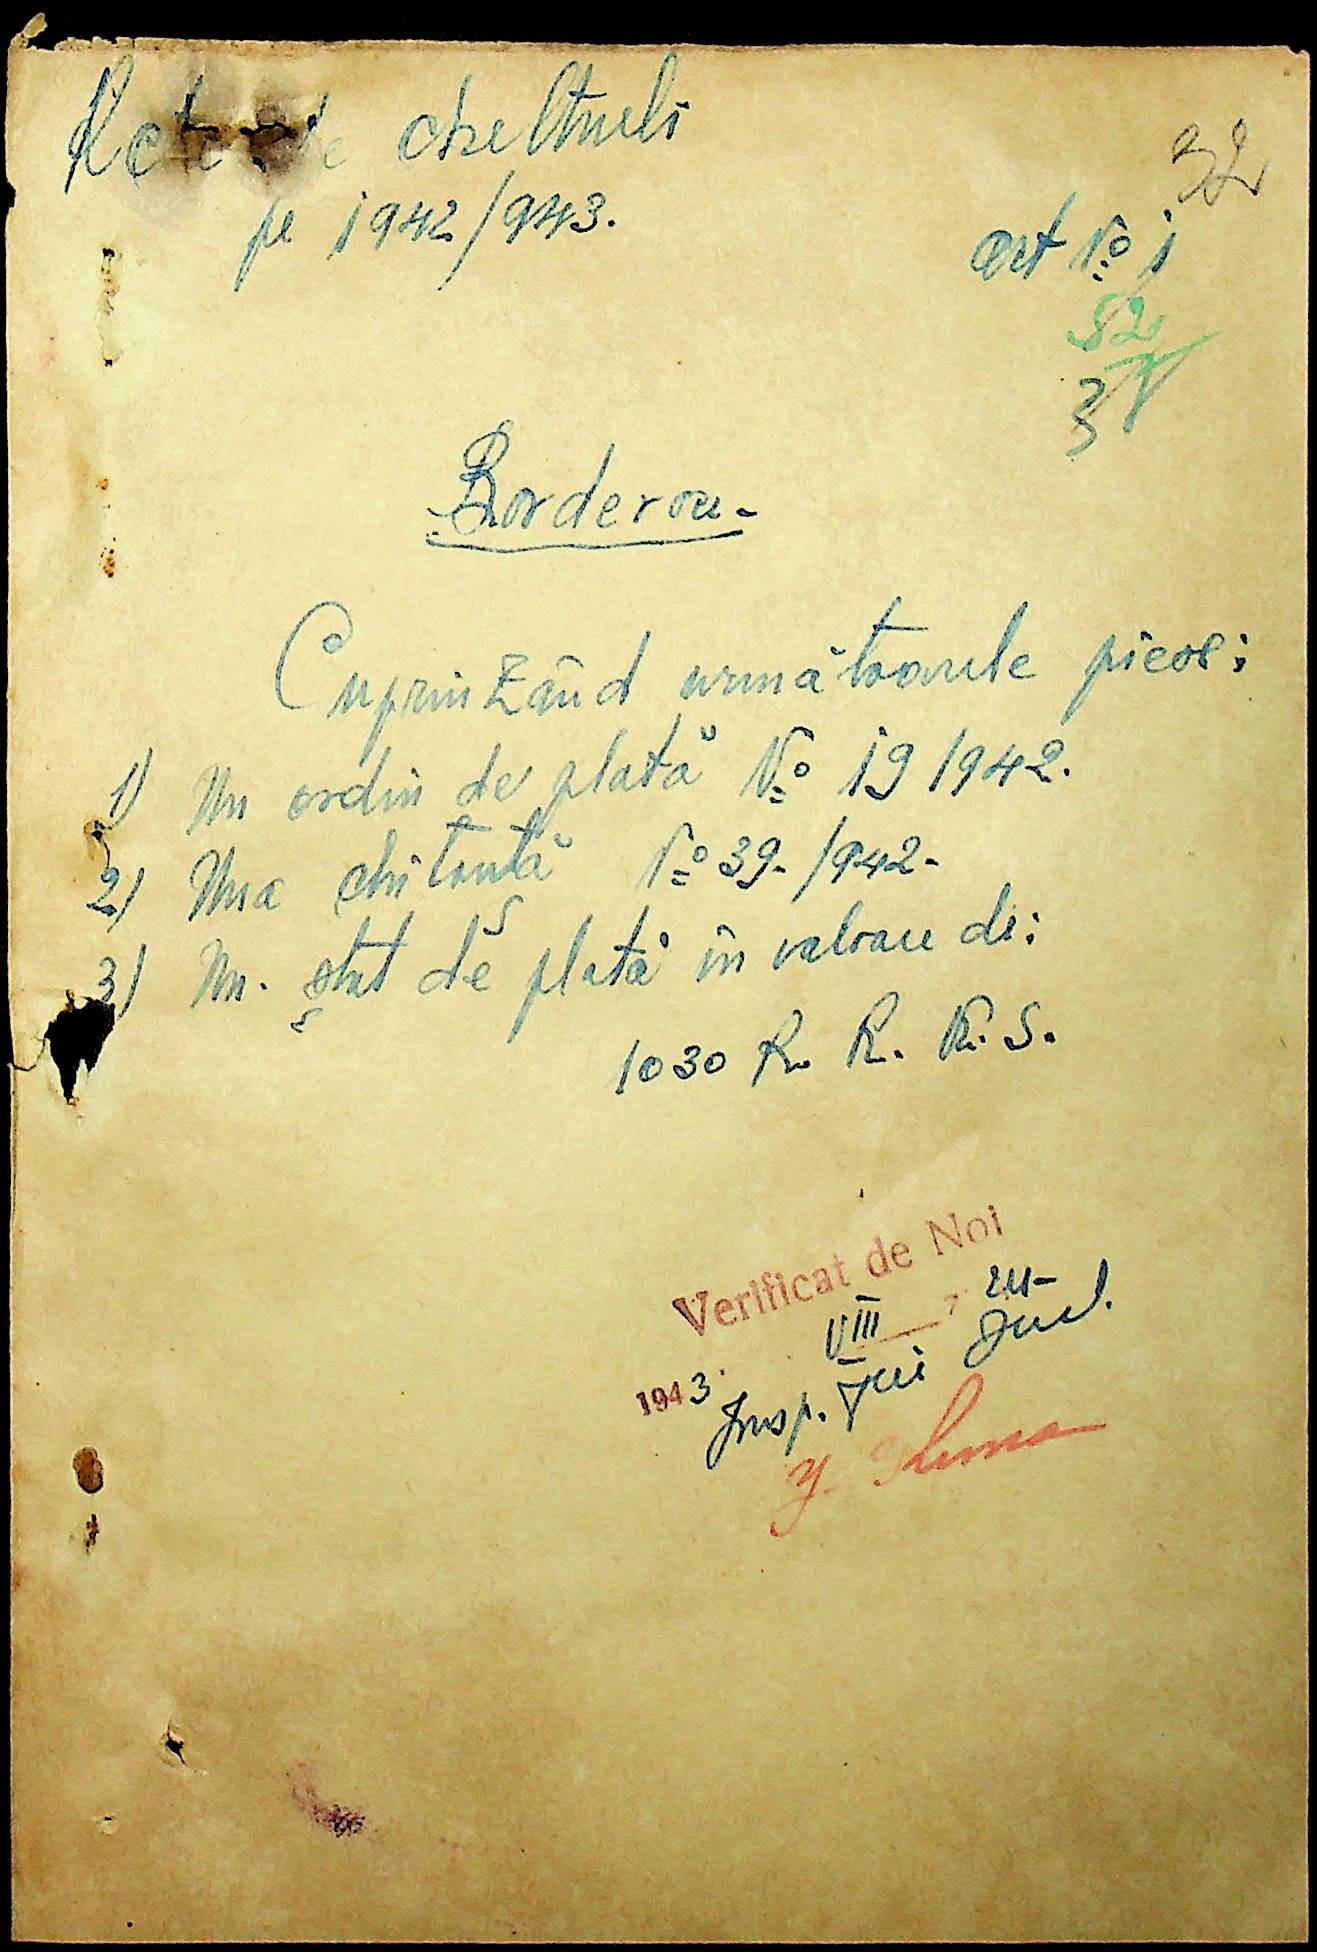 Acte de cheltueli
pe 1942/943.
32
Art № 1
52
3
Borderou-
Cuprinzând următoarele piese:
1) Un ordin de plată № 19 1942.
2) Una chitanță № 39-/942-
3) Un. ștat de plată în valoare de:
1030 R. R. K. S.
Verificat de Noi
1943 VIII
Insp.